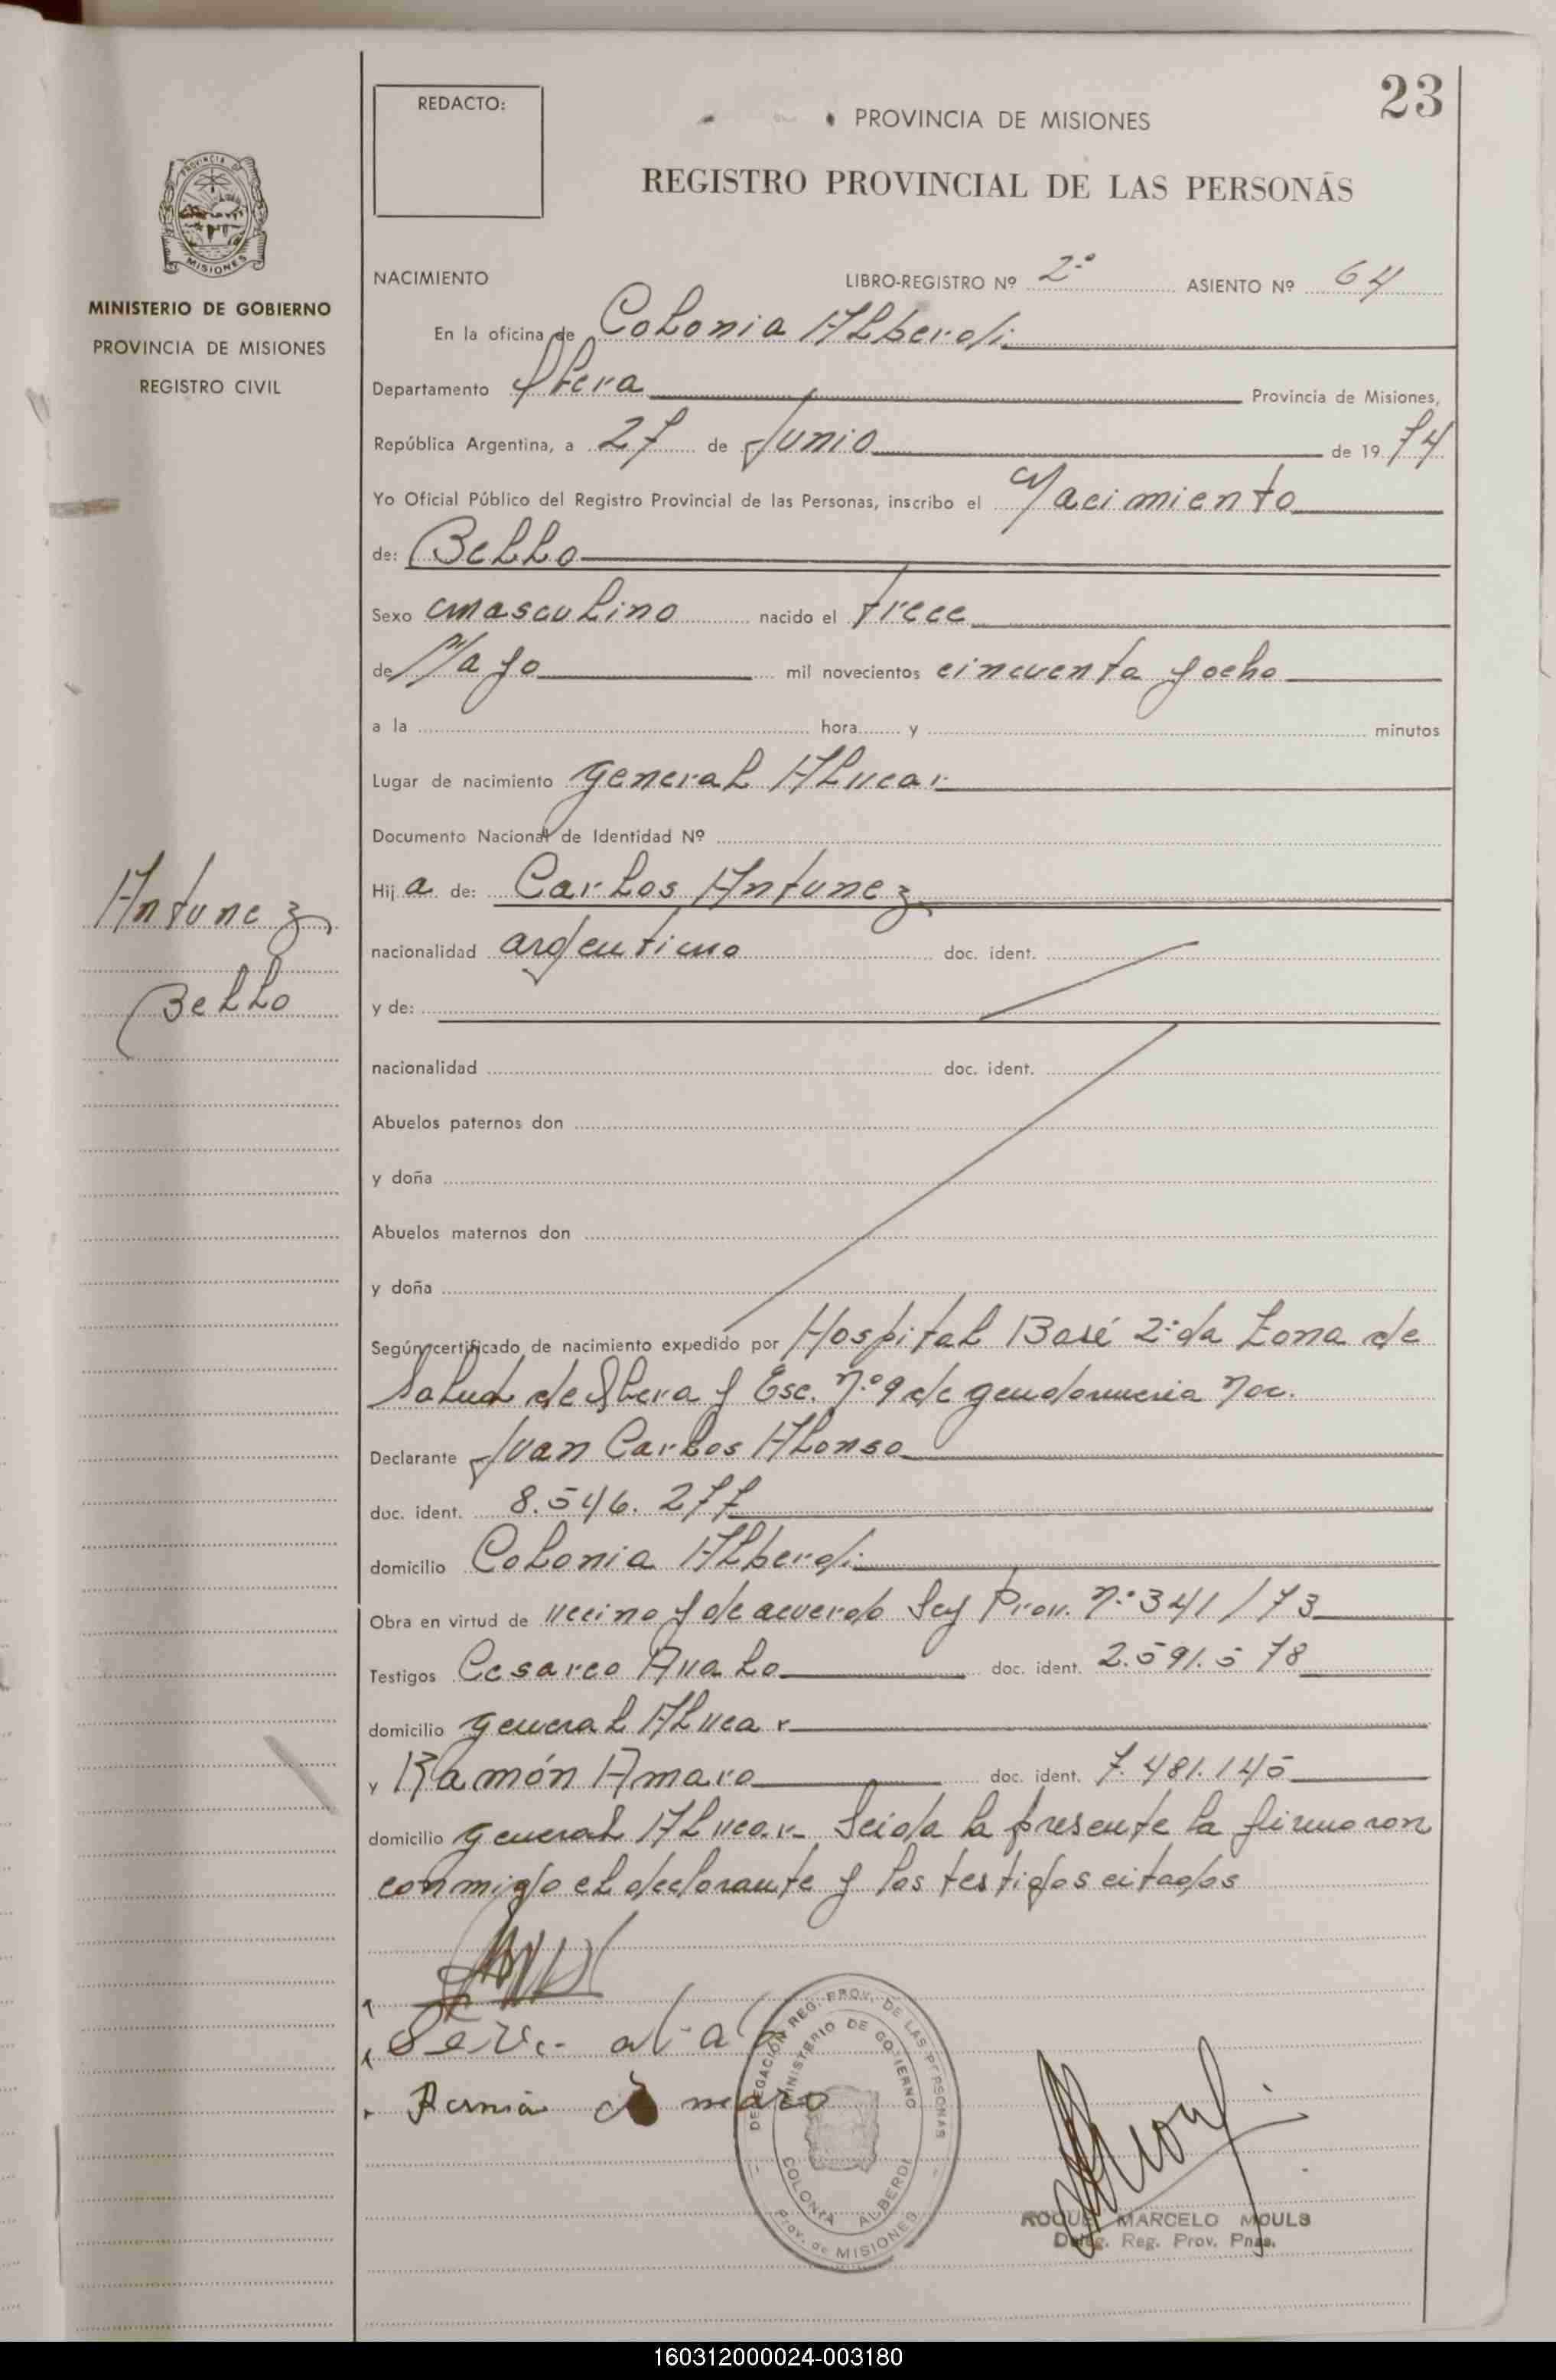 23
REDACTO:
PROVINCIA DE MISIONES
REGISTRO PROVINCIAL DE LAS PERSONAS
PROVINCIA DE
MISIONES
MINISTERIO DE GOBIERNO
PROVINCIA DE MISIONES
REGISTRO CIVIL
NACIMIENTO LIBRO-REGISTRO Nº 2º ASIENTO Nº 64
En la oficina de Colonia Alberdi
Departamento Obera Provincia de Misiones,
República Argentina, a 27 de Junio de 1974
Yo Oficial Público del Registro Provincial de las Personas, inscribo el Nacimiento
de: Bello
Sexo masculino nacido el trece
de Mayo mil novecientos cincuenta y ocho
a la hora y minutos
Lugar de nacimiento General Alvear
Documento Nacional de Identidad Nº
Antunez
Bello
Hij a de: Carlos Antunez
nacionalidad argentino doc. ident.
y de:
nacionalidad doc. ident.
Abuelos paternos don
y doña
Abuelos maternos don
y doña
Según certificado de nacimiento expedido por Hospital Base 2da Zona de
Salud de Obera y Esc. nº 9 de gendarmeria Nac.
Declarante Juan Carlos Alonso
doc. ident. 8.546.277
domicilio Colonia Alberdi
Obra en virtud de vecino y de acuerdo Ley Prov. nº 341/73
Testigos Cesareo Avalo doc. ident. 2.591.578
domicilio general Alvear
y Ramón Amaro doc. ident. 7.481.145
domicilio general Alvear Leida la presente la firmaron
conmigo el declarante y los testigos citados
DELEGACIÓN REG. PROV. DE LAS PERSONAS
MINISTERIO DE GOBIERNO
COLONIA ALBERDI
Prov. de MISIONES
ROQUE MARCELO MOULS
Deleg. Reg. Prov. Pnas.
160312000024-003180